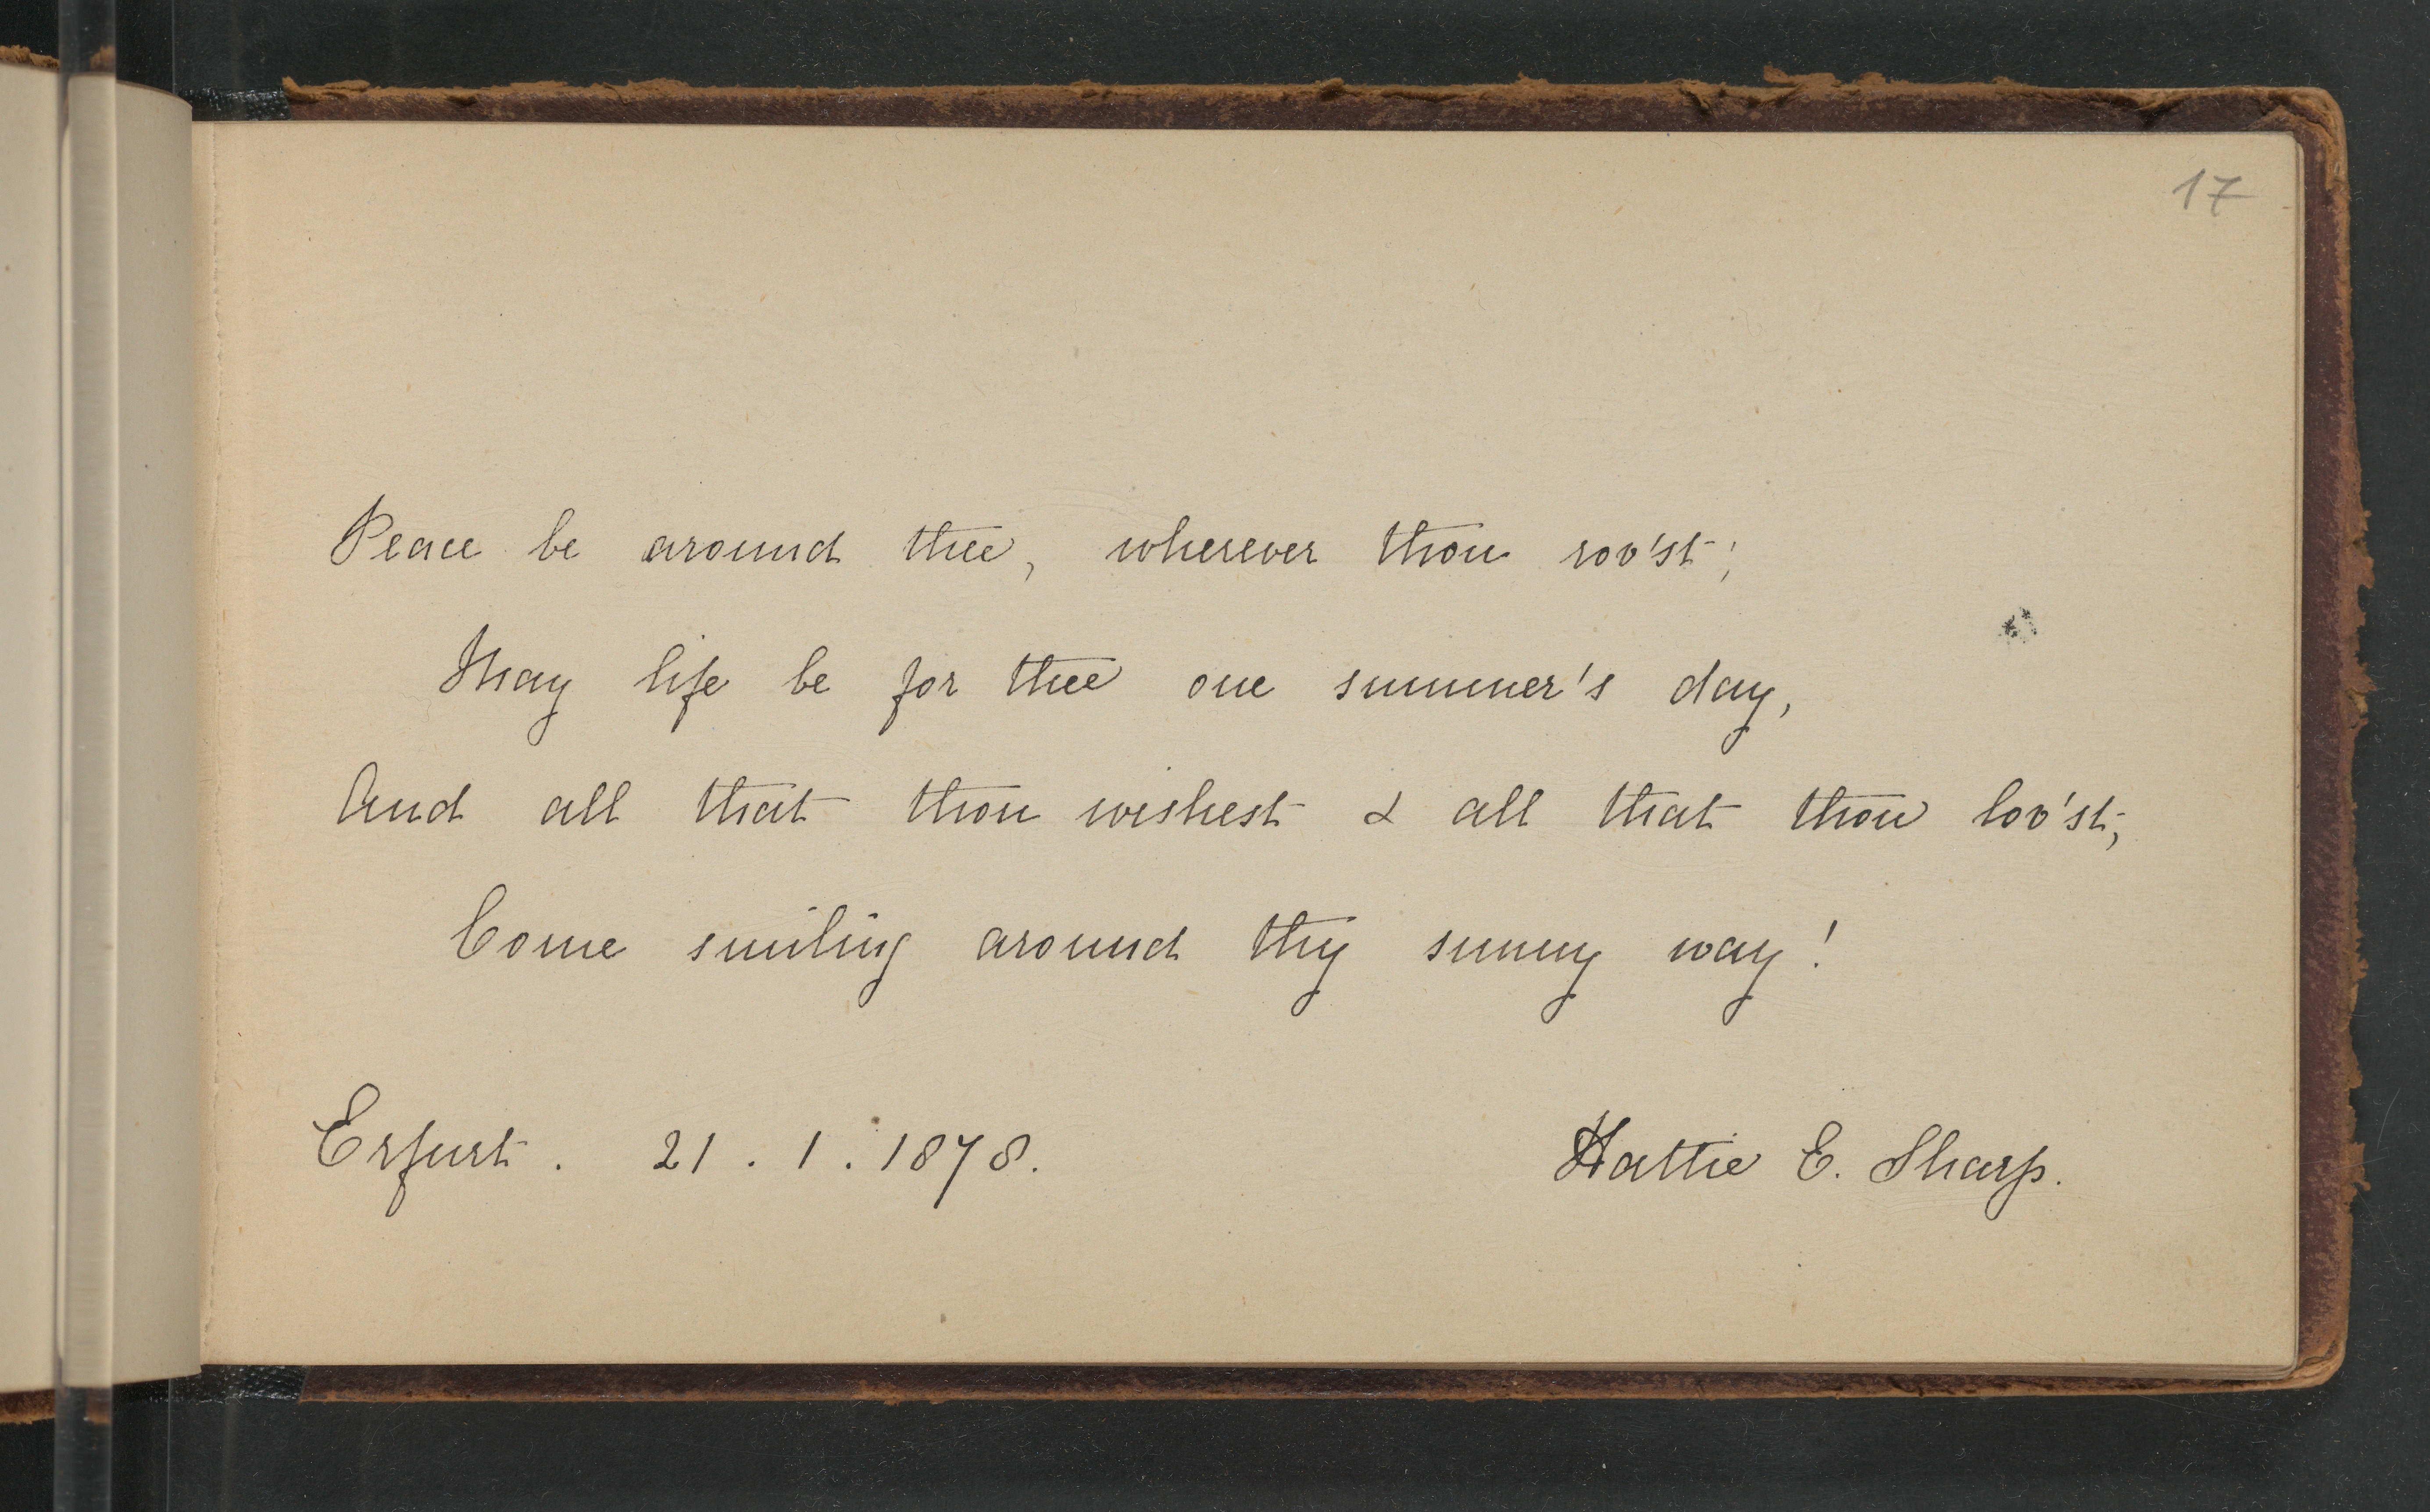 17
Peace be around thee, wherever thou rov'st;
May life be for thee one summer's day,
And all that thou wishest & all that thou lov'st;
Come smiling around thy sunny way!
Erfurt. 21. 1. 1878. Hattie E. Sharp.